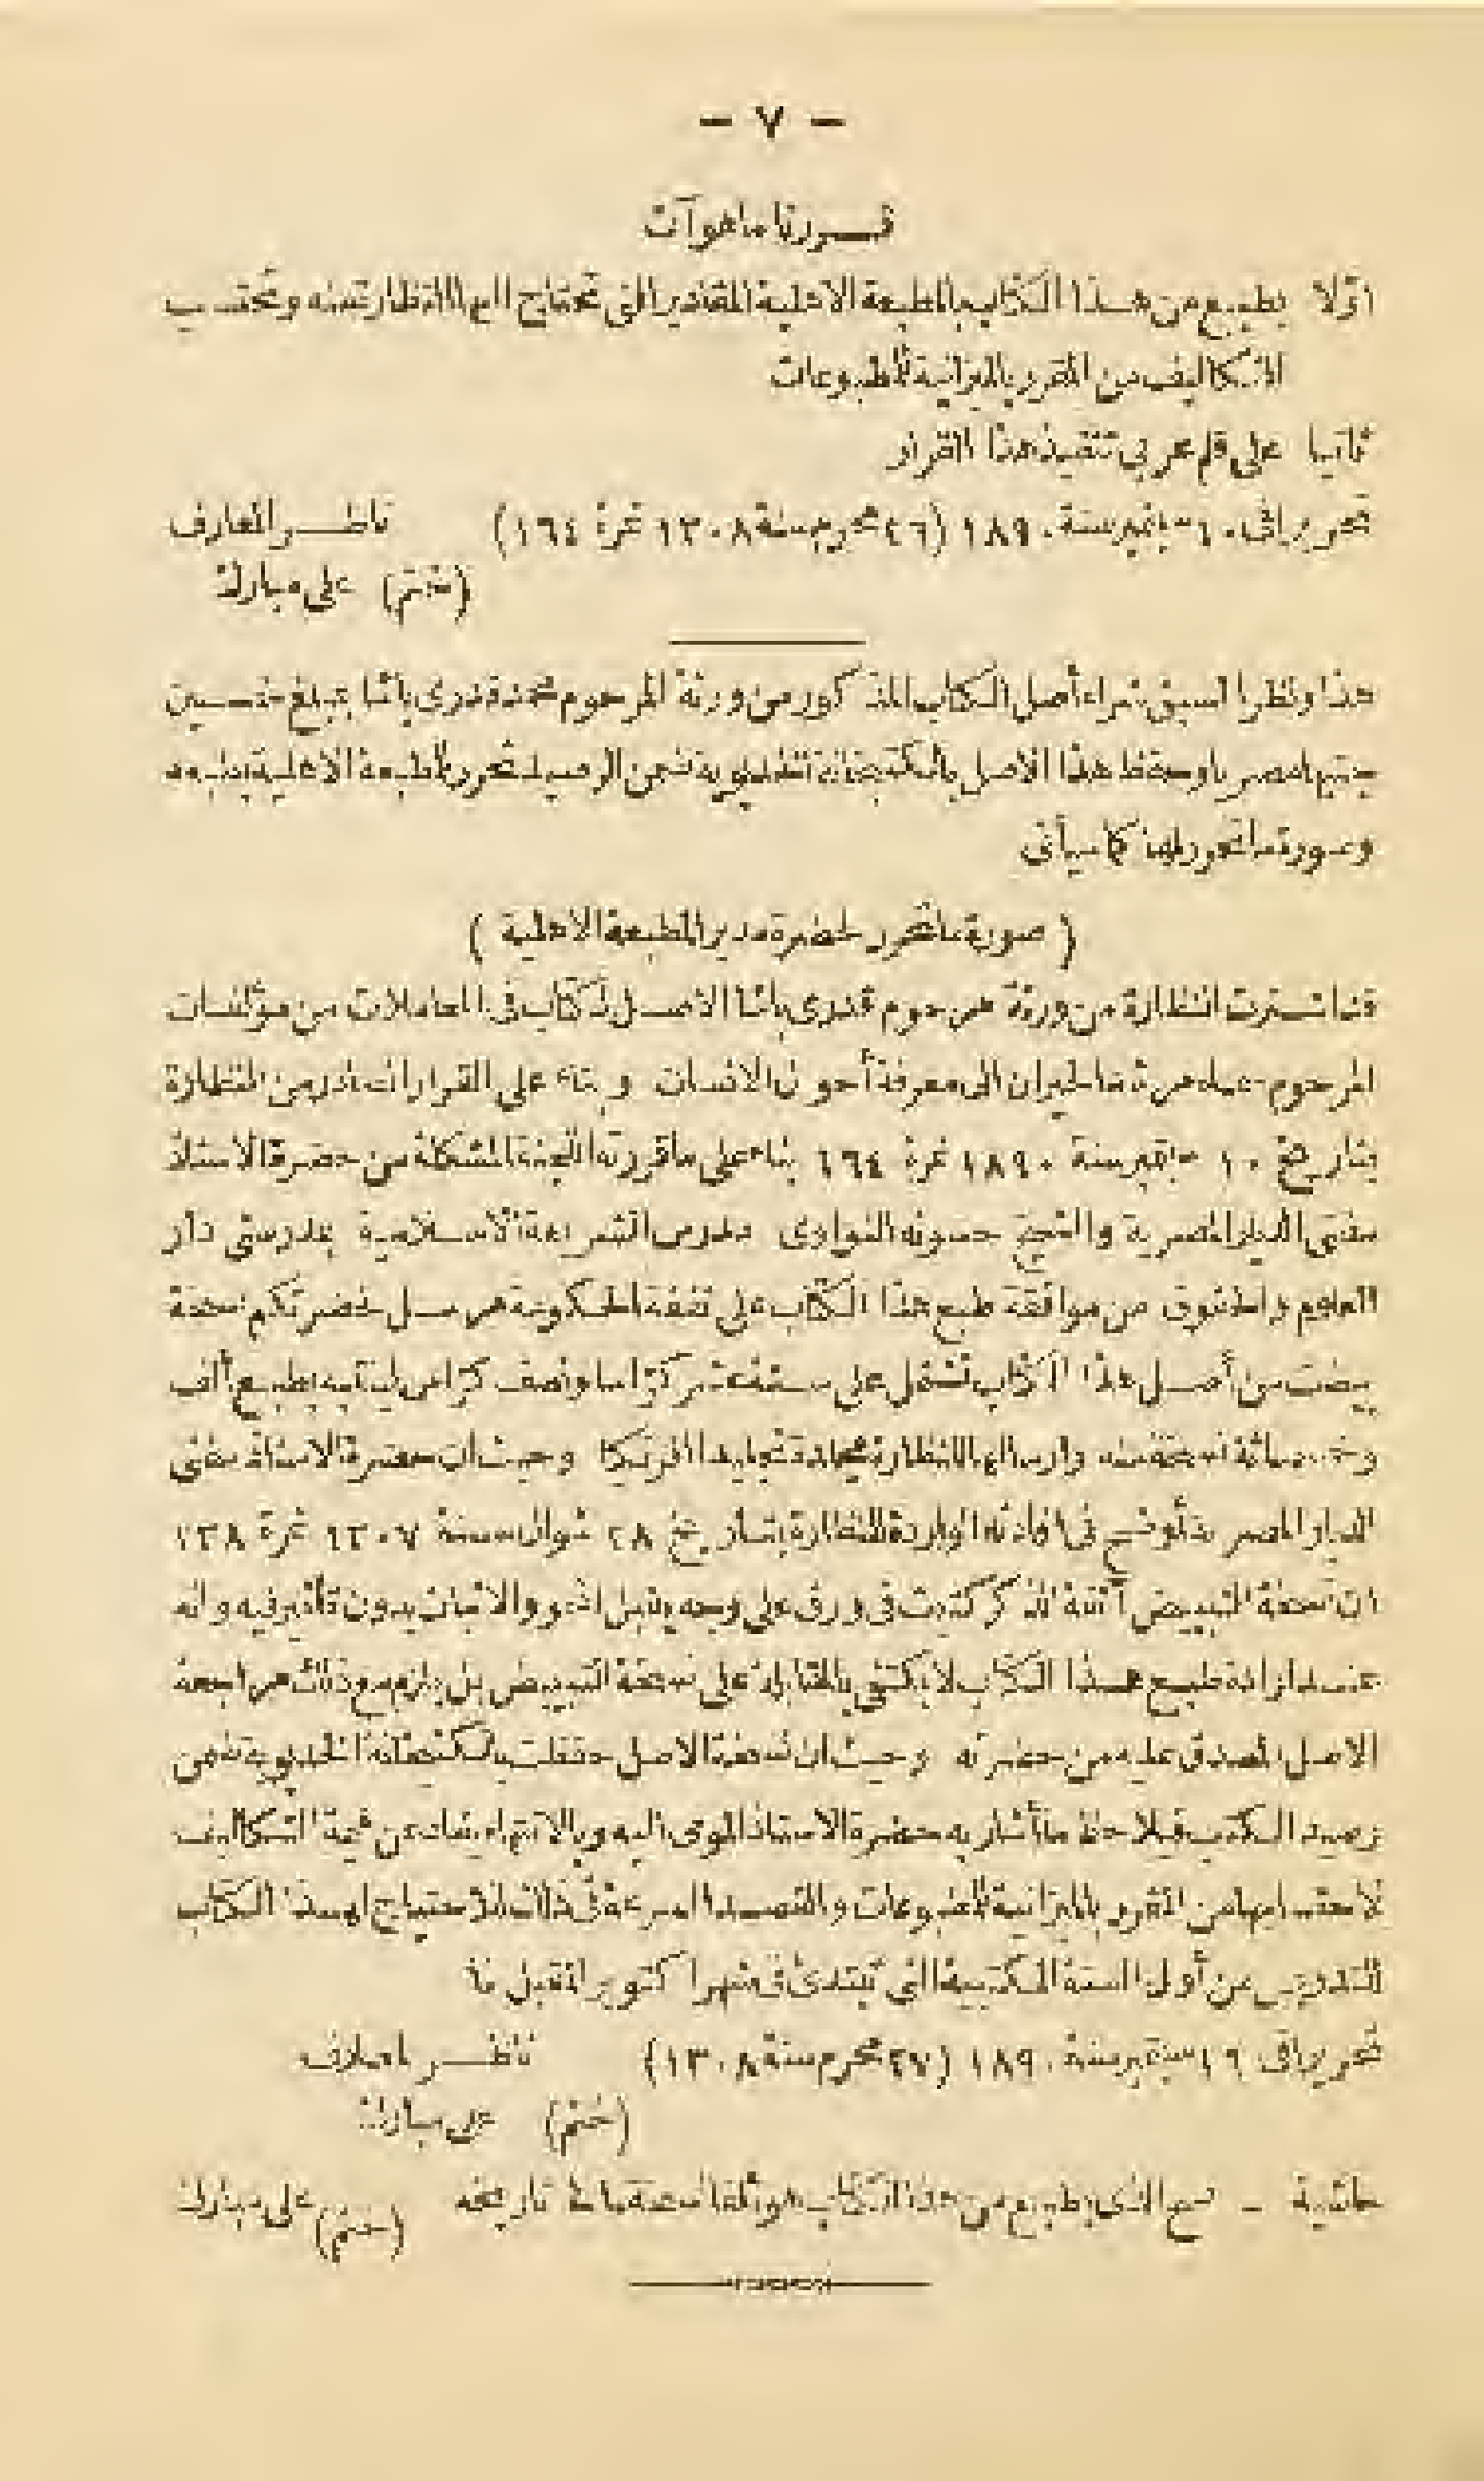 — ٧ —
قررنا ما هو آت
أولا يطبع من هذا الكتاب بالمطبعة الاهلية المقادير التى تحتاج اليها النظارة منه وتحتسب
التكاليف من المقرر بالميزانية للمطبوعات
ثانيا على قلم عربى تنفيذ هذا القرار
تحريرا فى ١٠ سبتمبر سنة ١٨٩٠ (٢٦ محرم سنة ١٣٠٨ نمرة ١٦٤) ناظر المعارف
(ختم) على مبارك
هذا ونظرا لسبق شراء أصل الكتاب المذكور من ورثة المرحوم محمد قدرى باشا بمبلغ خمسين
جنيها مصريا وحفظ هذا الاصل بالكتبخانة الخديوية ضمن الرصيد تحرر للمطبعة الاهلية بطبعه
وصورة ما تحرر لها كما سيأتى
( صورة ما تحرر لحضرة مدير المطبعة الاهلية )
قد اشترت النظارة من ورثة مرحوم قدرى باشا الاصل لكتاب فى المعاملات من مؤلفات
المرحوم سماه مرشد الحيران الى معرفة أحوال الانسان وبناء على القرار الصادر من النظارة
بتاريخ ١٠ سبتمبر سنة ١٨٩٠ نمرة ١٦٤ بناء على ما قررته اللجنة المشكلة من حضرة الاستاذ
مفتى الديار المصرية والشيخ حسونه النواوى مدرس الشريعة الاسلامية بمدرستى دار
العلوم والحقوق من موافقة طبع هذا الكتاب على نفقة الحكومة مرسل لحضرتكم نسخة
بيضت من أصل هذا الكتاب تشتمل على ستة عشر كراسا ونصف كراس ليتنبه بطبع ألف
وخمسمائة نسخة منه وارسالها للنظارة مجلدة تجليدا افرنكيا وحيث ان حضرة الاستاذ مفتى
الديار المصرية أوضح فى افادته الواردة للنظارة بتاريخ ٢٨ شوال سنة ١٣٠٧ نمرة ١٣٨
ان نسخة التبييض آنفة الذكر كتبت فى ورق على وجه يقبل المحو والاثبات بدون تأثير فيه وانه
عند ارادة طبع هذا الكتاب لا يكتفى بالمقابلة على نسخة التبييض بل يلزم مع ذلك مراجعة
الاصل المصدق عليه من حضرته وحيث ان نسخة الاصل حفظت بالكتبخانة الخديوية ضمن
رصيد الكتب فيلاحظ ما أشار به حضرة الاستاذ المومى اليه وبالانتهاء يفاد عن قيمة التكاليف
لاحتسابها من المقرر بالميزانية للمطبوعات والقصد السرعة فى ذلك للاحتياج لهذا الكتاب
للتدريس من أول السنة المكتبية التى تبتدئ فى شهر اكتوبر المقبل
تحريرا فى ١٦ سبتمبر سنة ١٨٩٠ (٢٧ محرم سنة ١٣٠٨) ناظر المعارف
(ختم) على مبارك
حاشية — الذى يطبع من هذا الكتاب هو ألفا نسخة تاريخه (ختم) على مبارك